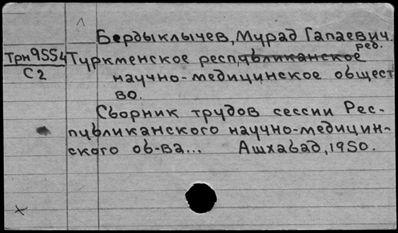 Бердыклычев, Мурад Гапаевич.
ред.
Трн9554 Туркменское республиканское
С2 научно-медицинское общест
во.
Сборник трудов сессии Рес-
публиканского научно-медицин-
ского об-ва... Ашхабад, 1950.